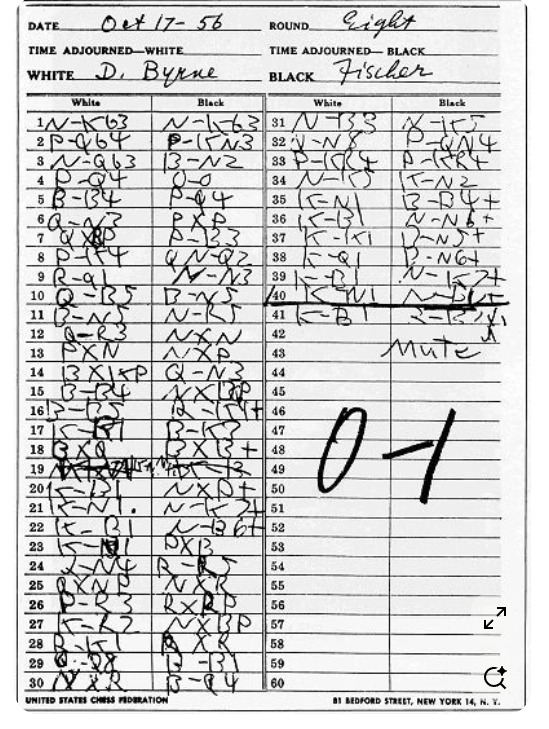 DATE Oct 17 - 56 ROUND Eight
TIME ADJOURNED—WHITE TIME ADJOURNED — BLACK
WHITE D. Byrne BLACK Fischer
White Black
1 N-KB3 N-KB3
2 P-QB4 P-KN3
3 N-QB3 B-N2
4 P-Q4 O-O
5 B-B4 P-Q4
6 Q-N3 PXP
7 QXBP P-B3
8 P-K4 QN-Q2
9 R-Q1 N-N3
10 Q-B5 B-N5
11 B-N5 N-R5
12 Q-R3 NXN
13 PXN NXP
14 BXKP Q-N3
15 B-B4 NXBP
16 B-B5 R-K1+
17 K-B1 B-K3
18 BXQ BXB+
19
20 K-B1 NXP+
21 K-N1 N-K7+
22 K-B1 N-B6+
23 K-N1 PXB
24 Q-N4 R-R5
25 QXNP NXR
26 P-R3 RXRP
27 K-R2 NXBP
28 R-K1 RXR
29 Q-Q8 B-B1
30 NXR B-Q4
White Black
31 N-B3 N-K5
32 Q-N8 P-QN4
33 P-KR4 P-KR4
34 N-K5 K-N2
35 K-N1 B-B4+
36 K-B1 N-N6+
37 K-K1 B-N5+
38 K-Q1 B-N6+
39 K-B1 N-K7+
40 K-N1 N-B6+
41 K-B1 R-B7
42
43 Mate
44
45
46
47
48
49
50
51
52
53
54
55
56
57
58
59
60
0-1
UNITED STATES CHESS FEDERATION 81 BEDFORD STREET, NEW YORK 14, N. Y.